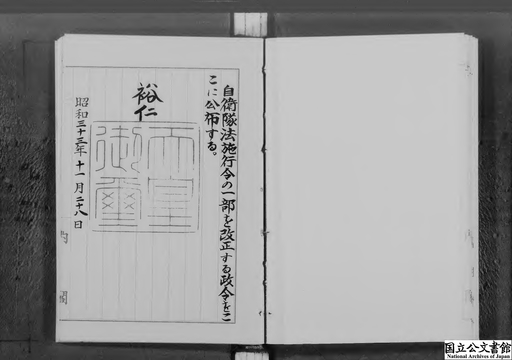 自衛隊法施行令の一部を改正する政令をこ
こに公布する。
裕仁
天皇御璽
昭和三十三年十一月二十八日
国立公文書館
National Archives of Japan